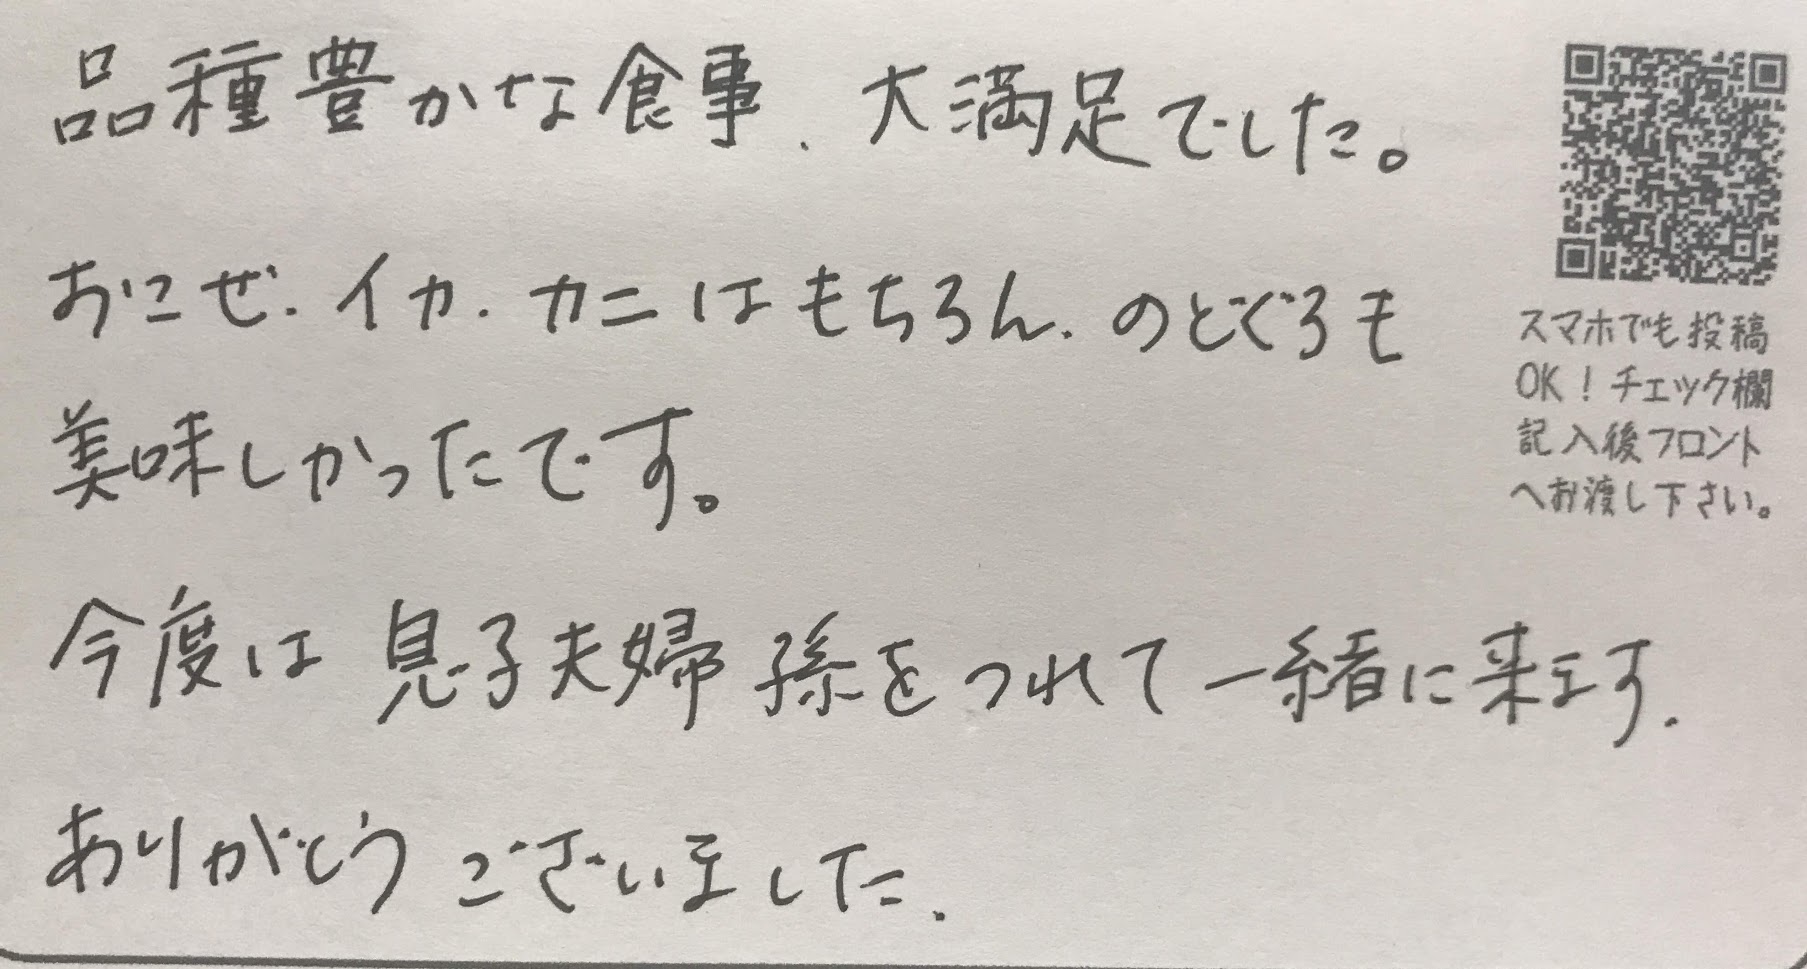 品種豊かな食事、大満足でした。
おこぜ、イカ、カニはもちろん、のどぐろも
美味しかったです。
今度は息子夫婦孫をつれて一緒に来ます。
ありがとうございました。
スマホでも投稿
OK！チェック欄
記入後フロント
へお渡し下さい。